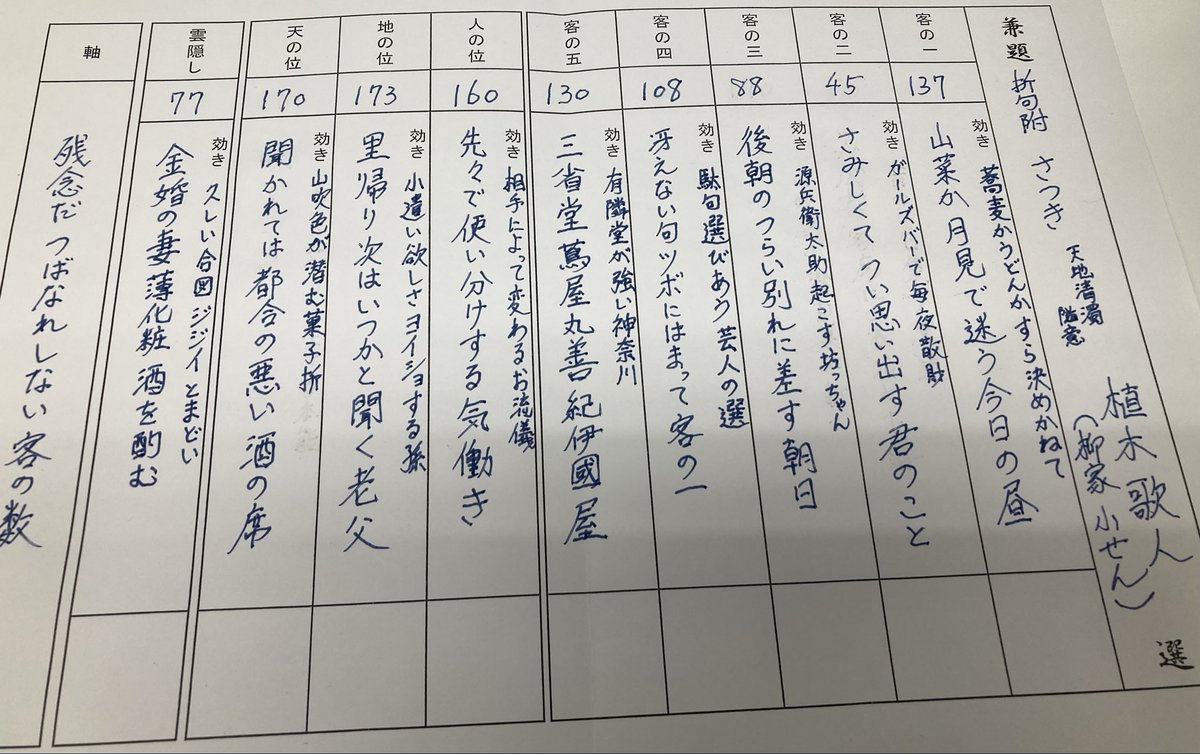 兼題 折句附 さつき 天地清濁
随意
植木歌人
（柳家小せん） 選
客の一
137
効き 蕎麦かうどんかすら決めかねて
山菜か月見で迷う今日の昼
客の二
45
効き ガールズバーで毎夜散財
さみしくてつい思い出す君のこと
客の三
88
効き 源兵衛太助起こす坊っちゃん
後朝のつらい別れに差す朝日
客の四
108
効き 駄句選びあう芸人の選
冴えない句ツボにはまって客の一
客の五
130
効き 有隣堂が強い神奈川
三省堂蔦屋丸善紀伊國屋
人の位
160
効き 相手によって変わるお流儀
先々で使い分けする気働き
地の位
173
効き 小遣い欲しさヨイショする孫
里帰り次はいつかと聞く老父
天の位
170
効き 山吹色が潜む菓子折
聞かれては都合の悪い酒の席
雲隠し
77
効き スレい合図ジジイとまどい
金婚の妻薄化粧酒を酌む
軸
残念だつばなれしない客の数